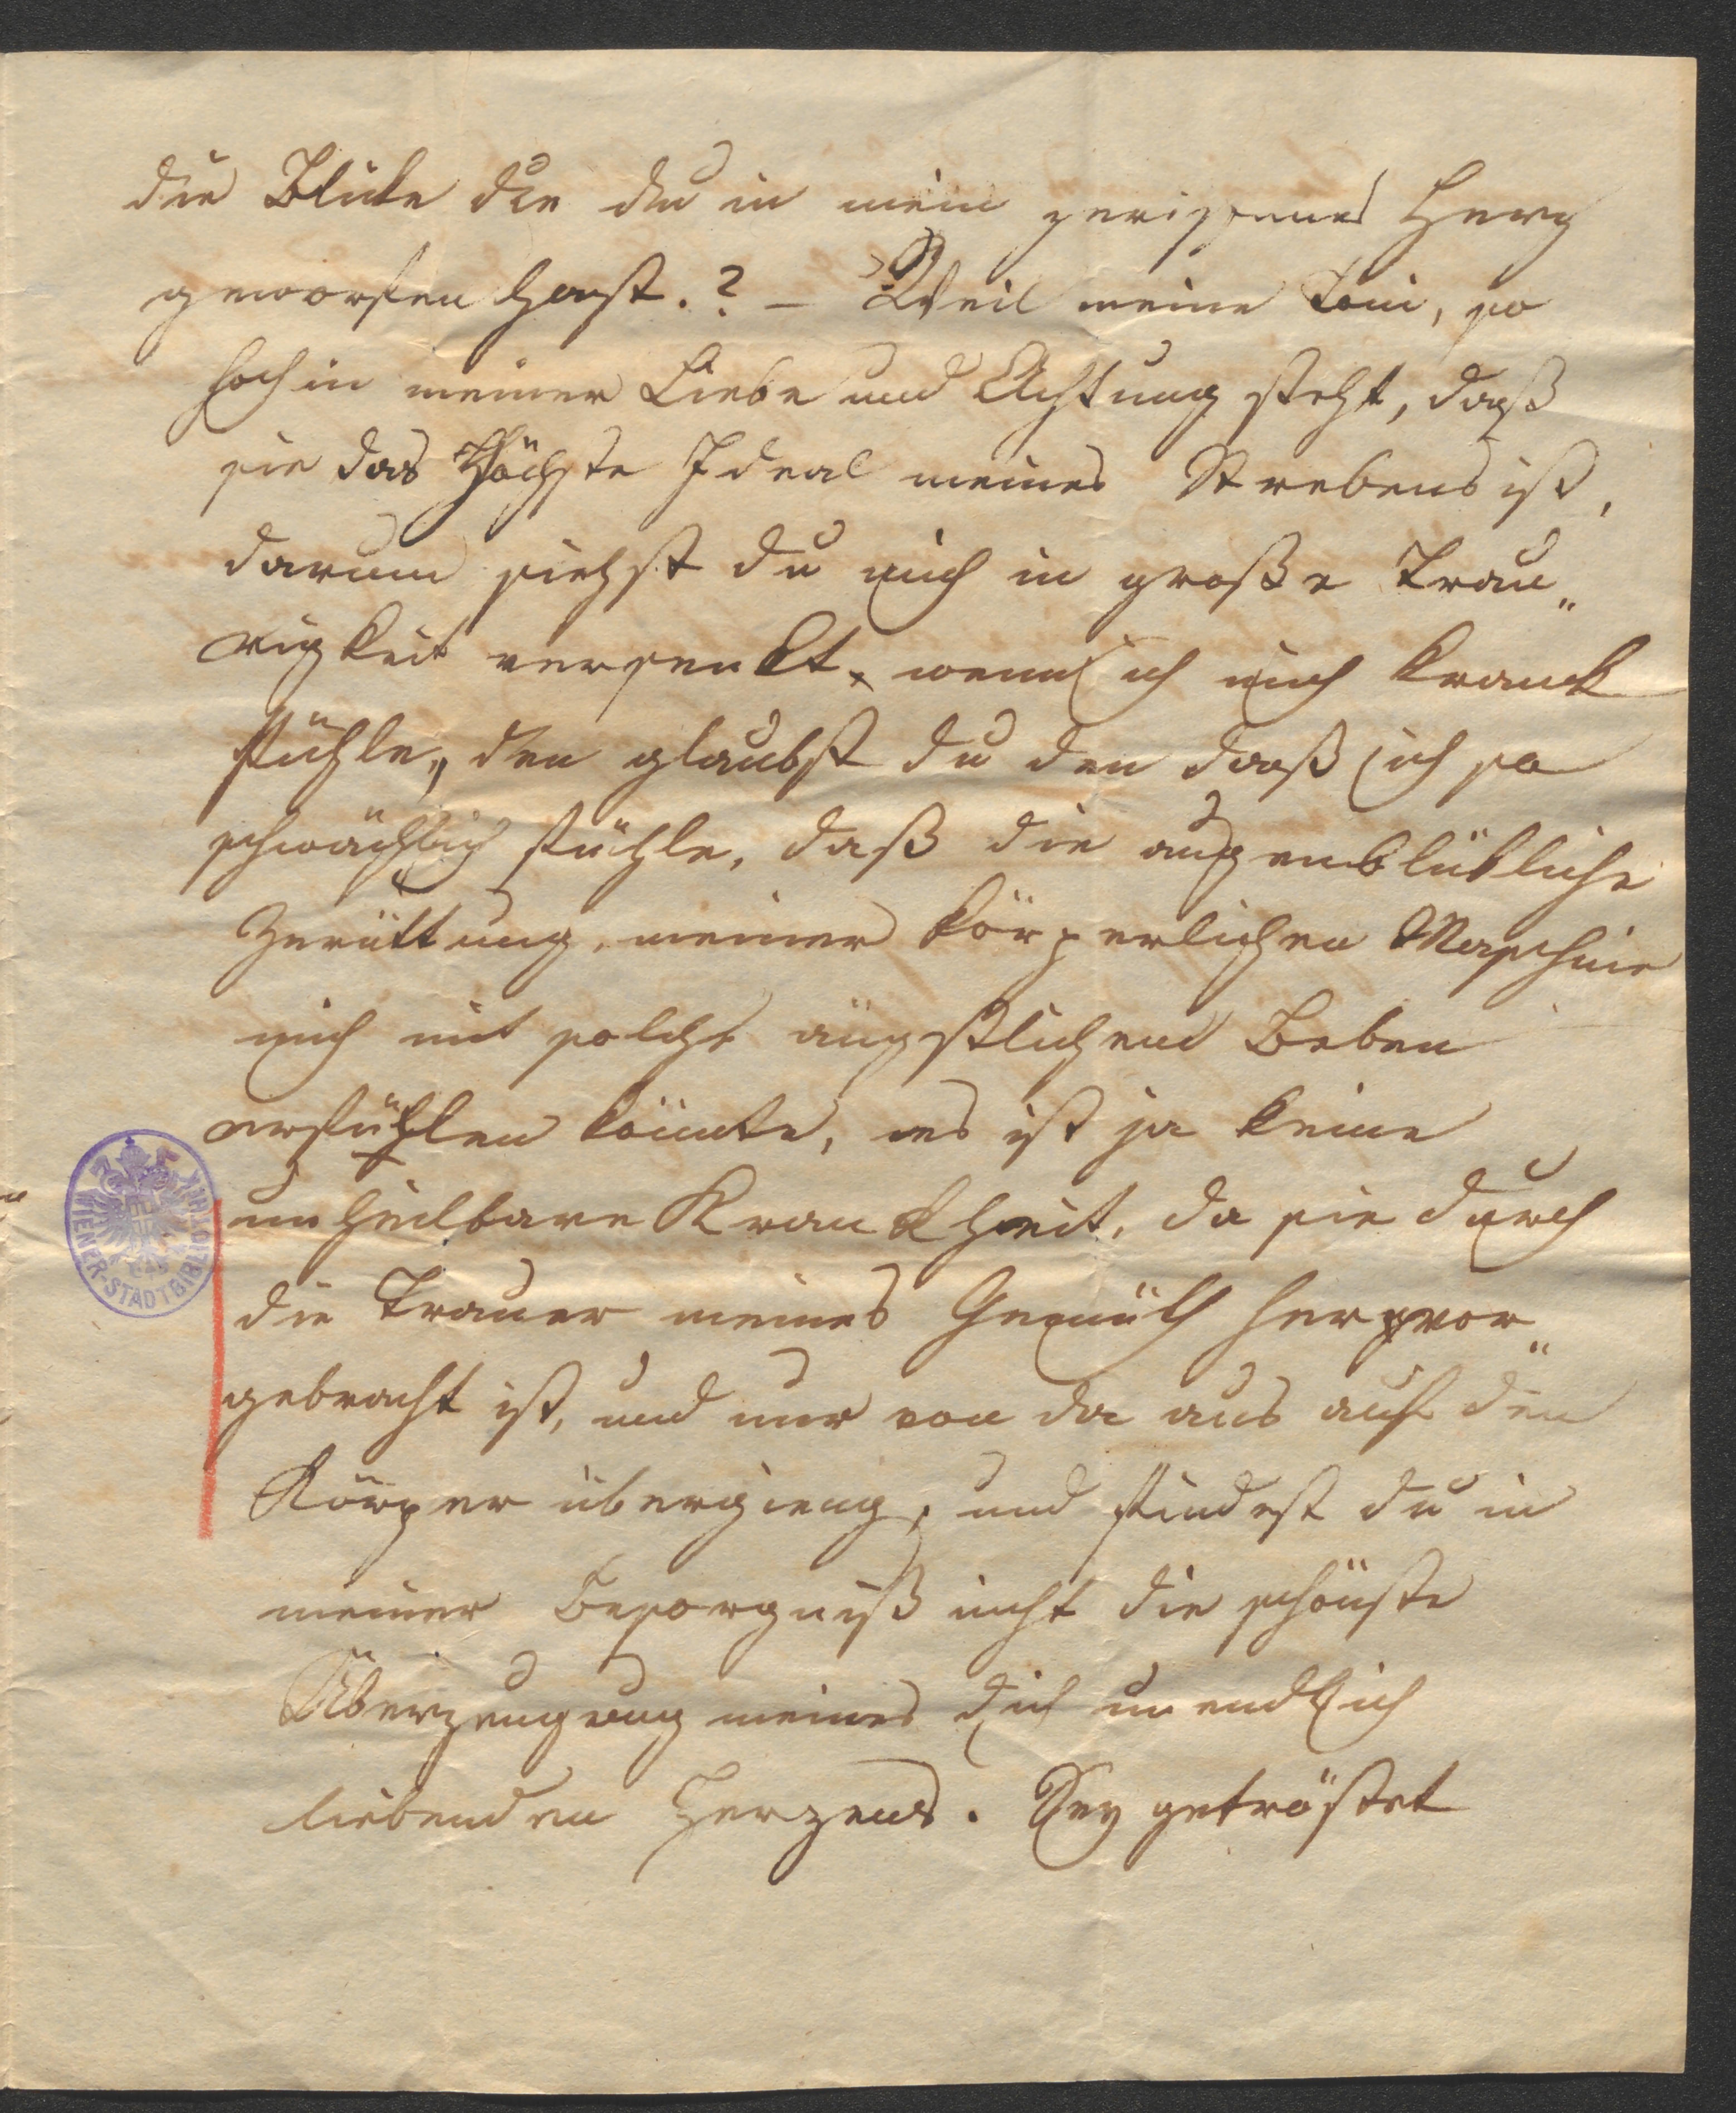 die Blicke die du in mein zerissenes Herz
geworfen hast.? – Weil meine Toni, so
hoch in meiner Liebe und Achtung steht, daß
sie das Höchste Ideal meines Strebens ist,
darum siehst du mich in große Trau„
rigkeit versenkt, wenn ich mich krank
fühle, den glaubst du den daß ich so
schwächlich fühle, daß die augenblükliche
Zerüttung, meiner körperlichen Maschine
mich mit solche ängstlichen Beben
erfühlen könnte, es ist ja keine
unheilbare Krankheit, da sie durch
die Trauer meines Gemüth hervor„
gebracht ist, und nur von da aus auf den
Körper übergieng, und findest du in
meiner Besorgniß nicht die schönste
Überzeugung meines dich unendlich
liebenden Herzens. Sey getröstet
WIENER-STADTBIBLIOTHEK